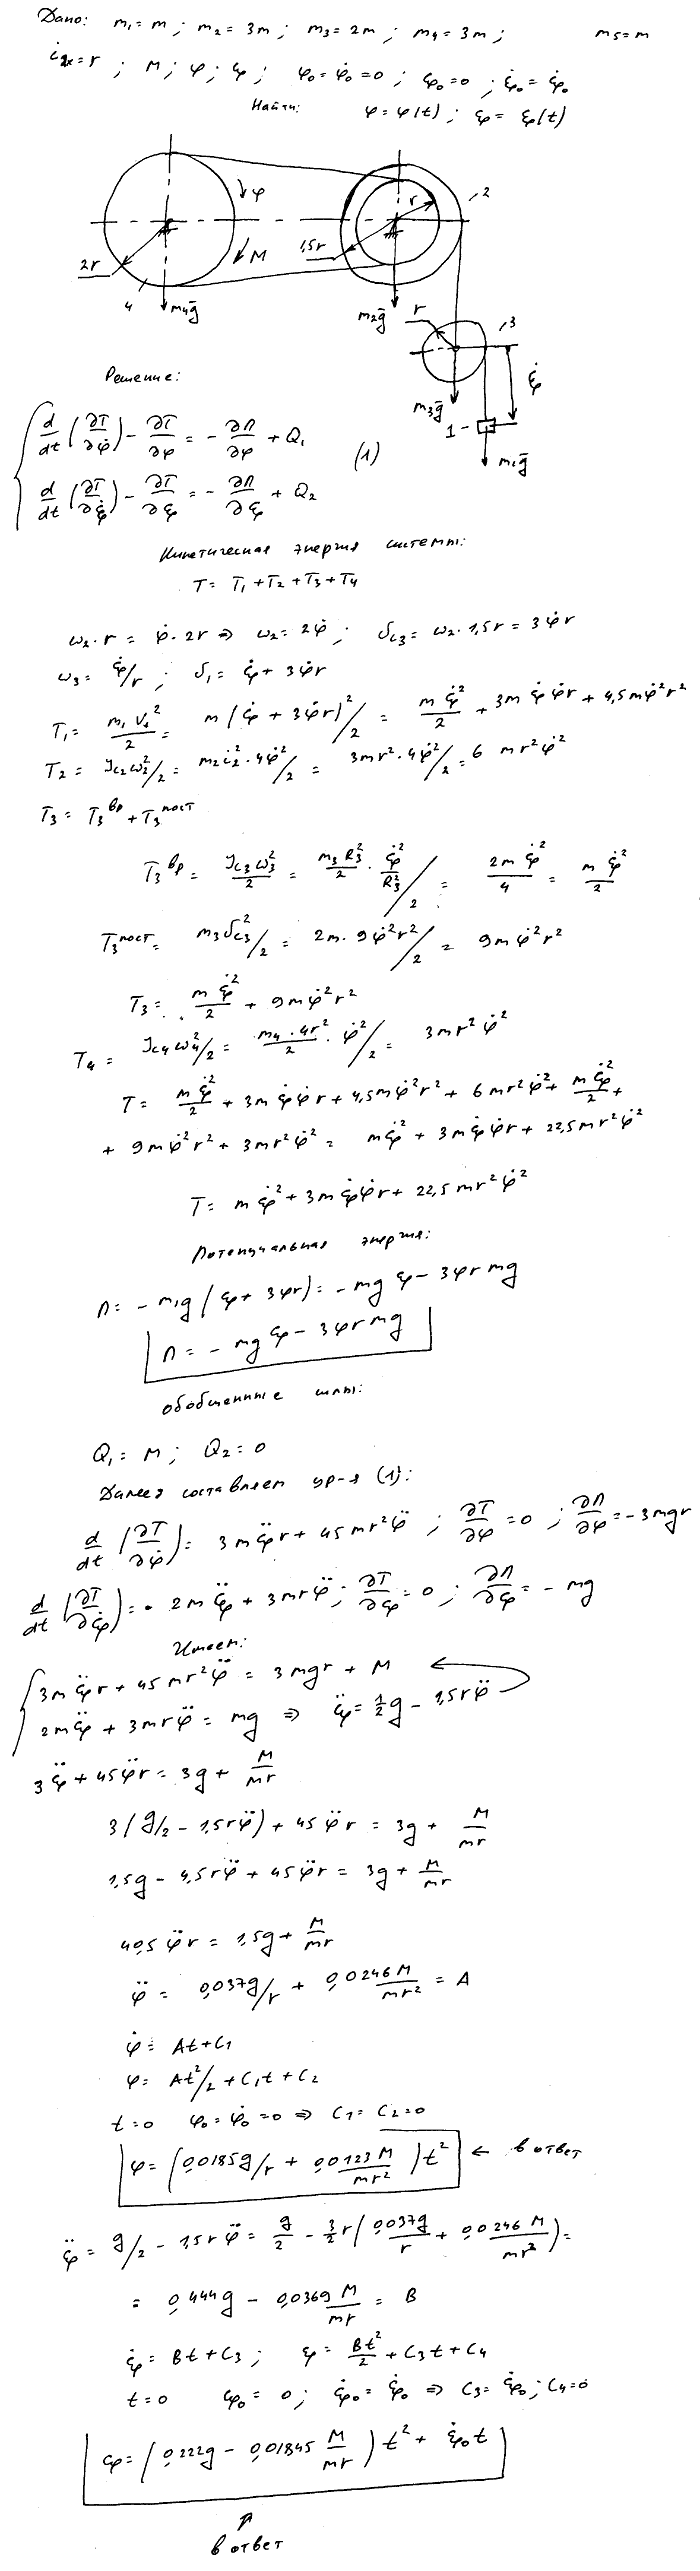 Дано: m₁ = m ; m₂ = 3m ; m₃ = 2m ; m₄ = 3m ; m₅ = m
i₂ₓ = r ; M ; φ ; ξ ; φ₀ = φ̇₀ = 0 ; ξ₀ = 0 ; ξ̇₀ = ξ̇₀
Найти: φ = φ(t) ; ξ = ξ(t)
φ
M
2r
4
m₄g̅
r
2
1,5r
m₂g̅
r
3
ξ
m₃g̅
1
m₁g̅
Решение:
d/dt (∂T/∂φ̇) − ∂T/∂φ = − ∂П/∂φ + Q₁
(1)
d/dt (∂T/∂ξ̇) − ∂T/∂ξ = − ∂П/∂ξ + Q₂
Кинетическая энергия системы:
T = T₁ + T₂ + T₃ + T₄
ω₂ · r = φ̇ · 2r ⇒ ω₂ = 2φ̇ ; υc₃ = ω₂ · 1,5r = 3φ̇r
ω₃ = ξ̇/r ; υ₁ = ξ̇ + 3φ̇r
T₁ = m₁V₁²/2 = m(ξ̇ + 3φ̇r)²/2 = mξ̇²/2 + 3mξ̇φ̇r + 4,5mφ̇²r²
T₂ = Jc₂ω₂²/2 = m₂i₂² · 4φ̇²/2 = 3mr² · 4φ̇²/2 = 6 mr²φ̇²
T₃ = T₃ᵇᵖ + T₃ᵖᵒˢᵗ
T₃ᵇᵖ = Jc₃ω₃²/2 = m₃R₃²/2 · ξ̇²/R₃² /2 = 2mξ̇²/4 = mξ̇²/2
T₃ᵖᵒˢᵗ = m₃υc₃²/2 = 2m · 9φ̇²r²/2 = 9mφ̇²r²
T₃ = mξ̇²/2 + 9mφ̇²r²
T₄ = Jc₄ω₄²/2 = m₄ · 4r²/2 · φ̇²/2 = 3mr²φ̇²
T = mξ̇²/2 + 3mξ̇φ̇r + 4,5mφ̇²r² + 6mr²φ̇² + mξ̇²/2 +
+ 9mφ̇²r² + 3mr²φ̇² = mξ̇² + 3mξ̇φ̇r + 22,5mr²φ̇²
T = mξ̇² + 3mξ̇φ̇r + 22,5mr²φ̇²
Потенциальная энергия:
П = − m₁g(ξ + 3φr) = − mgξ − 3φrmg
П = − mgξ − 3φrmg
Обобщенные силы:
Q₁ = M ; Q₂ = 0
Далее составляем ур-я (1):
d/dt (∂T/∂φ̇) = 3mξ̈r + 45mr²φ̈ ; ∂T/∂φ = 0 ; ∂П/∂φ = −3mgr
d/dt (∂T/∂ξ̇) = 2mξ̈ + 3mrφ̈ ; ∂T/∂ξ = 0 ; ∂П/∂ξ = − mg
Имеем:
3mξ̈r + 45mr²φ̈ = 3mgr + M
2mξ̈ + 3mrφ̈ = mg ⇒ ξ̈ = ½g − 1,5rφ̈
3ξ̈ + 45φ̈r = 3g + M/mr
3(g/2 − 1,5rφ̈) + 45φ̈r = 3g + M/mr
1,5g − 4,5rφ̈ + 45φ̈r = 3g + M/mr
40,5φ̈r = 1,5g + M/mr
φ̈ = 0,037g/r + 0,0246M/mr² = A
φ̇ = At + C₁
φ = At²/2 + C₁t + C₂
t = 0 φ₀ = φ̇₀ = 0 ⇒ C₁ = C₂ = 0
φ = (0,0185g/r + 0,0123M/mr²)t² ← в ответ
ξ̈ = g/2 − 1,5rφ̈ = g/2 − 3/2 r(0,037g/r + 0,0246M/mr²) =
= 0,444g − 0,0369 M/mr = B
ξ̇ = Bt + C₃ ; ξ = Bt²/2 + C₃t + C₄
t = 0 ξ₀ = 0 ; ξ̇₀ = ξ̇₀ ⇒ C₃ = ξ̇₀ ; C₄ = 0
ξ = (0,222g − 0,01845 M/mr)t² + ξ̇₀t
в ответ